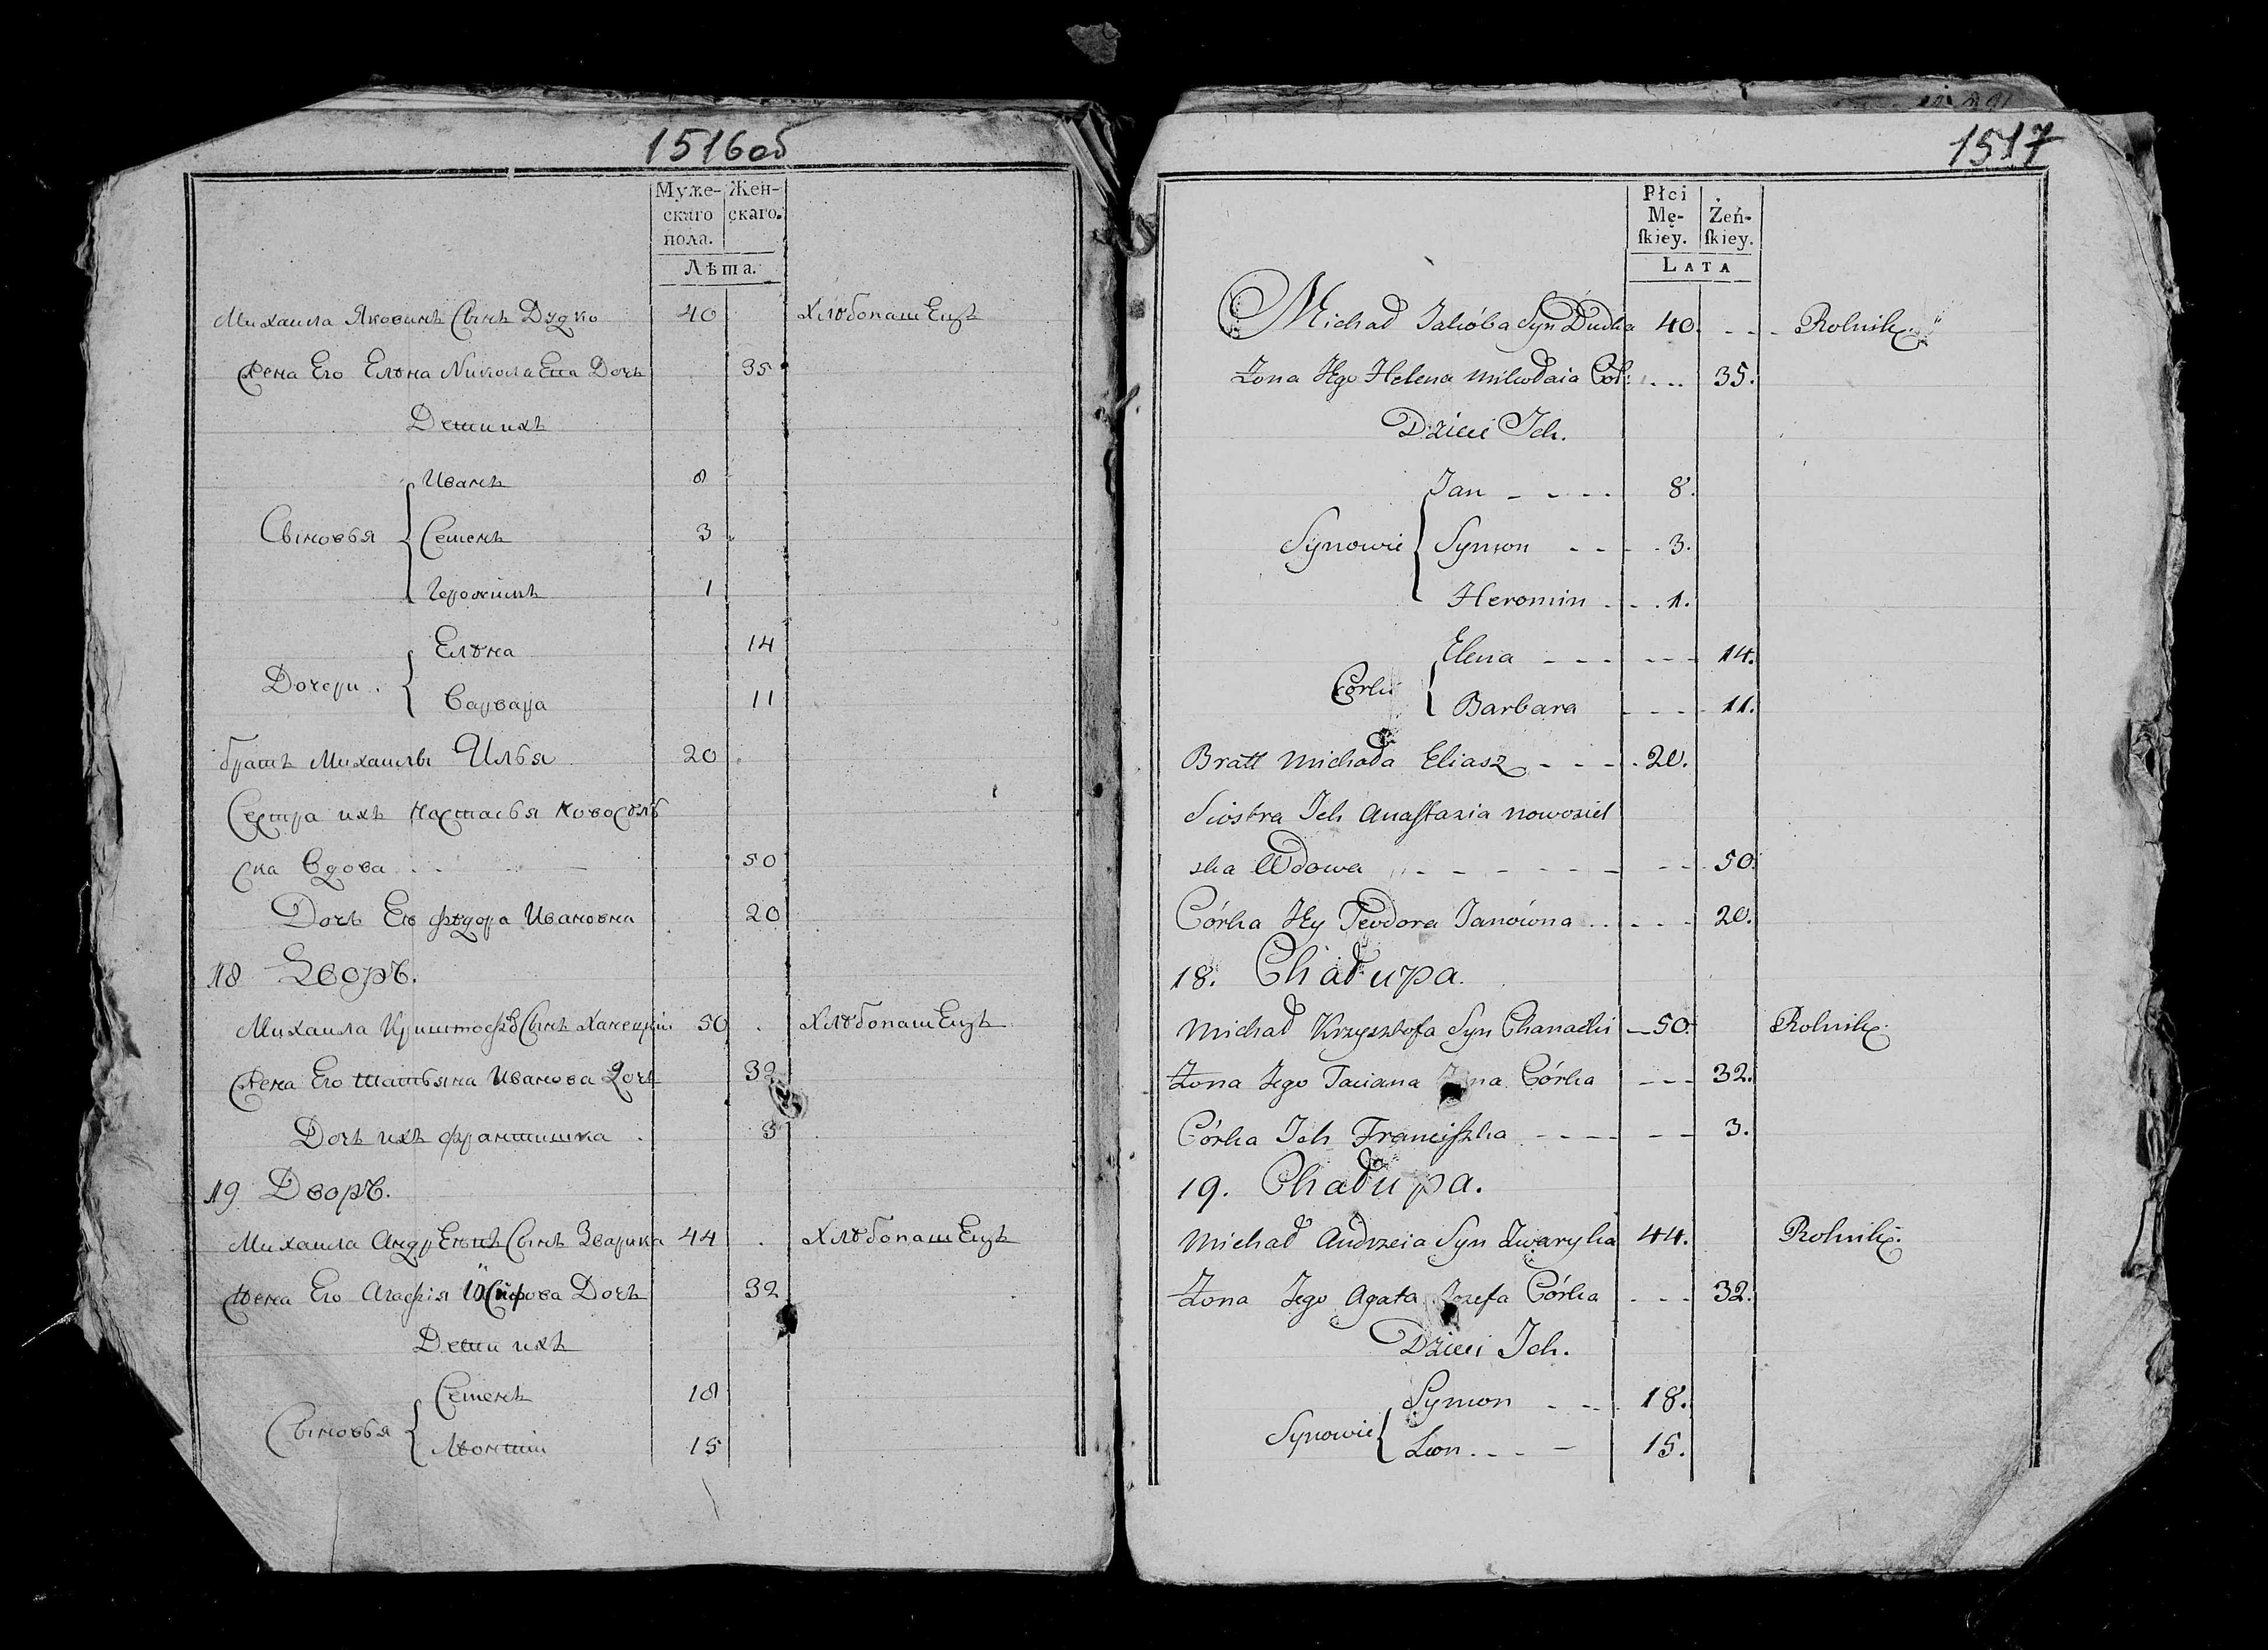 1516об
Муже-
скаго
пола.
Жен-
скаго.
Лѣта.
Михаила Яковинъ Сынъ Дудко 40 ХлѣбопашЕцъ
Жена Его Елѣна НиколаЕва Дочь 35
Дети ихъ
Сыновья
Иванъ 8
Семенъ 3
Героnимъ 1
Дочери
Елѣна 14
Варвара 11
братъ Михаилы Илья 20
Сестра ихъ Настасья Новосѣлѣ
ска Вдова 50
Дочь Ея Фѣдора Ивановна 20
18 Дворъ.
Михаила Криштофа Сынъ Ханецкии 50 ХлѣбопашЕцъ
Жена Его Татьяна Иванова Дочь 32
Дочь ихъ Францишка 3
19 Дворъ.
Михаила АндрЕевъ Сынъ Зварика 44 ХлѣбопашЕцъ
Жена Его Агафія Дочь 32
Дети ихъ
Сыновья
Семенъ 18
Лѣонтии 15
1517
Płci
Mę-
ſkiey.
Żeń-
ſkiey.
LATA
Michał Jakóba Syn Dudka 40. Rolnik.
Żona Jego Helena Mikołaia Cór: 35.
Dzieci Ich.
Synowie
Jan 8.
Symon 3.
Heromin 1.
Córki
Elena 14.
Barbara 11.
Bratt Michała Eliasz 20.
Siostra Ich Anaſtazia Nowosiel
ska Wdowa 50.
Córka Jey Teodora Janówna 20.
18. Chałupa.
Michał Krzysztofa Syn Chanacki 50. Rolnik.
Żona Jego Taciana Córka 32.
Córka Ich Franciſzka 3.
19. Chałupa.
Michał Andrzeia Syn Zwaryka 44. Rolnik.
Żona Jego Agata Jozefa Córka 32.
Dzieci Ich.
Synowie
Symon 18.
Leon 15.